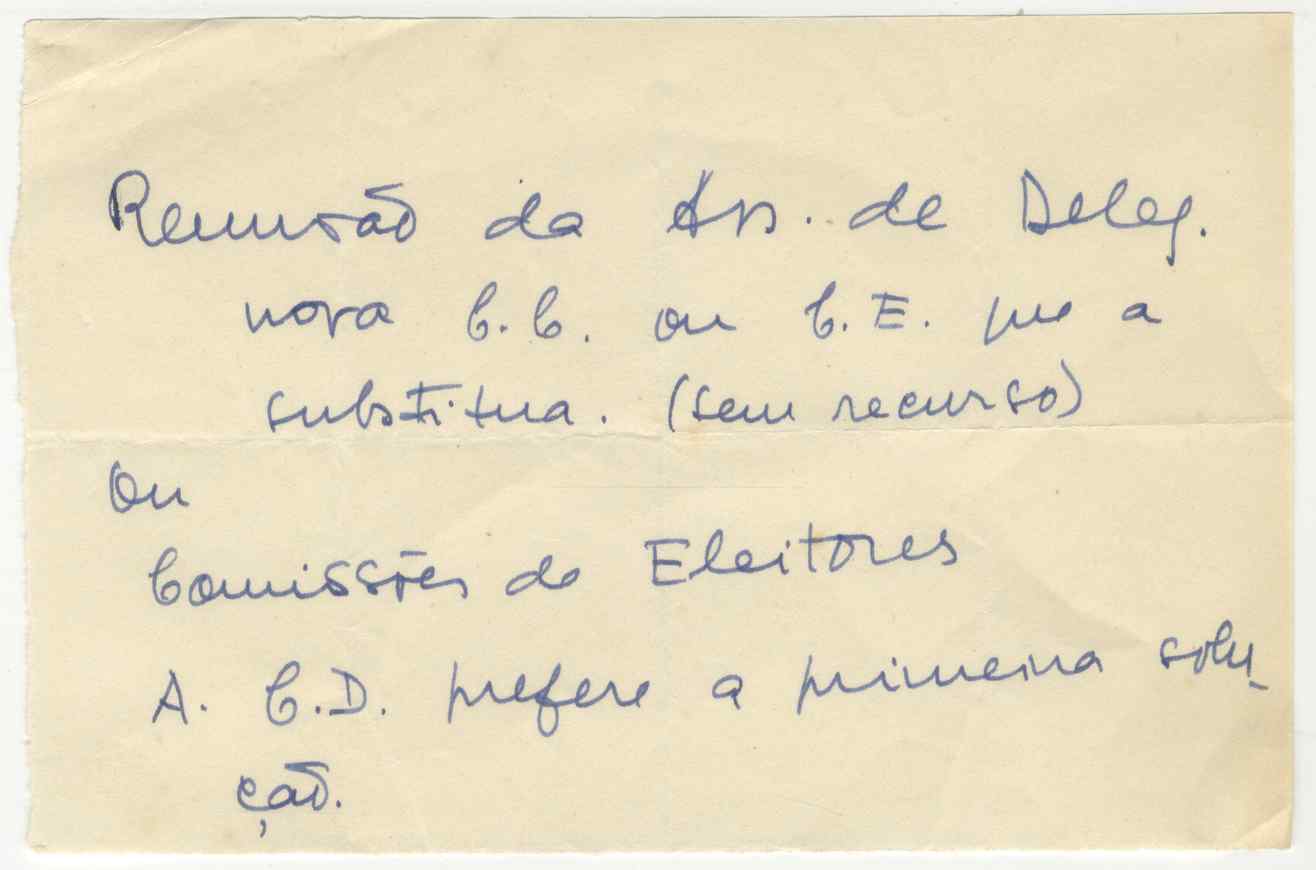 Reunião da Ass. de Deleg.
nova C.C. ou C.E. que a
substitua. (sem recurso)
Ou
Comissões de Eleitores
A. C.D. prefere a primeira solu-
ção.